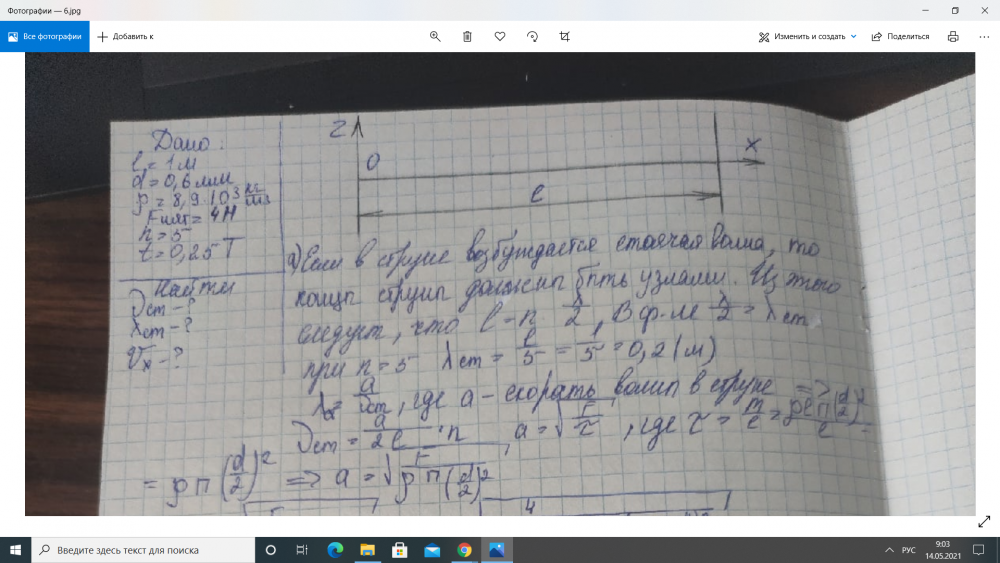 Фотографии — 6.jpg
Все фотографии
Добавить к
Изменить и создать
Поделиться
Дано:
l = 1 м
d = 0,6 мм
ρ = 8,9·10³ кг/м³
Fнат = 4Н
n = 5
t = 0,25T
Найти
νст - ?
λст - ?
Vx - ?
z
0
x
l
а) Если в струне возбуждается стоячая волна, то
концы струны должны быть узлами. Из этого
следует, что l = n λ/2, В ф-ле λ/2 = λст
при n = 5 λст = l/5 = /5 = 0,2 (м)
где a - скорость волны в струне =>
νст = a/2l · n, a = √F/τ, где τ = m/l = ρlπ(d/2)²/l =
= ρπ(d/2)² => a = √F/ρπ(d/2)²
4
Введите здесь текст для поиска
РУС
9:03
14.05.2021